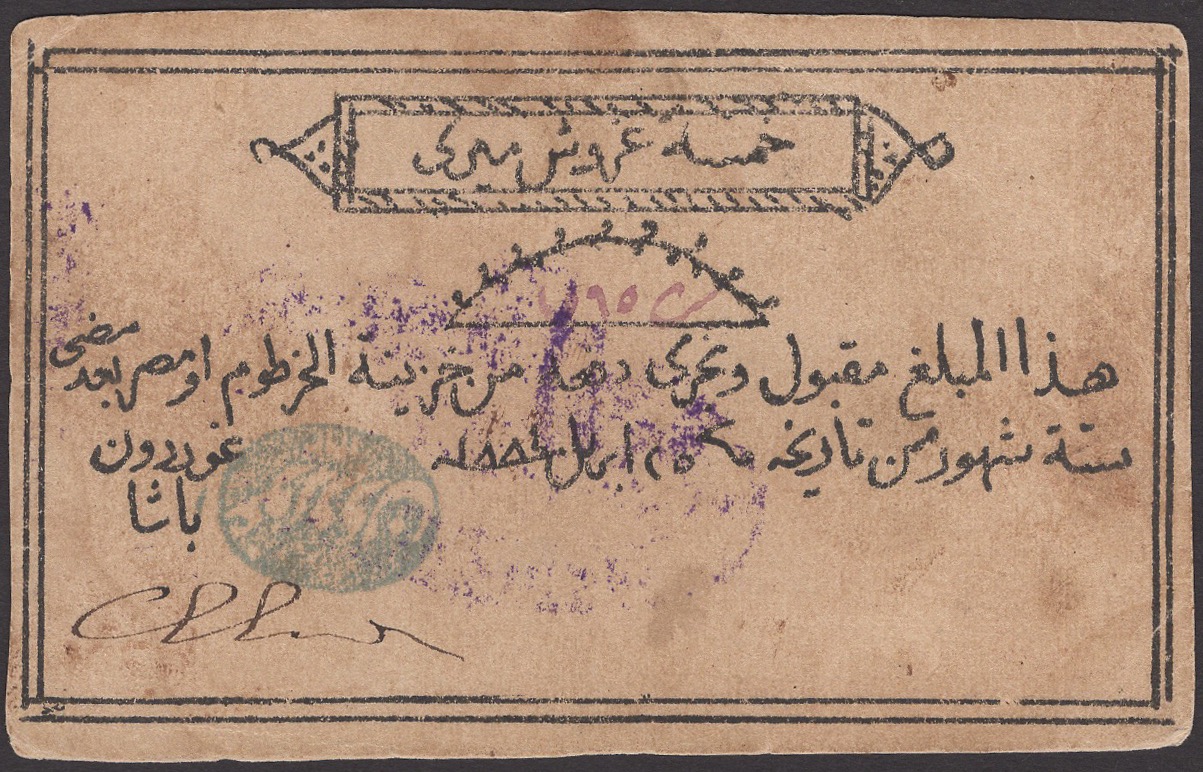 خمسة غروش ميرى
هذا المبلغ مقبول وتجرى دفعه من خزينة الخرطوم او مصر بعد مضى
ستة شهور من تاريخه ٢٥ ابريل ١٨٨٤
غوردون
باشا